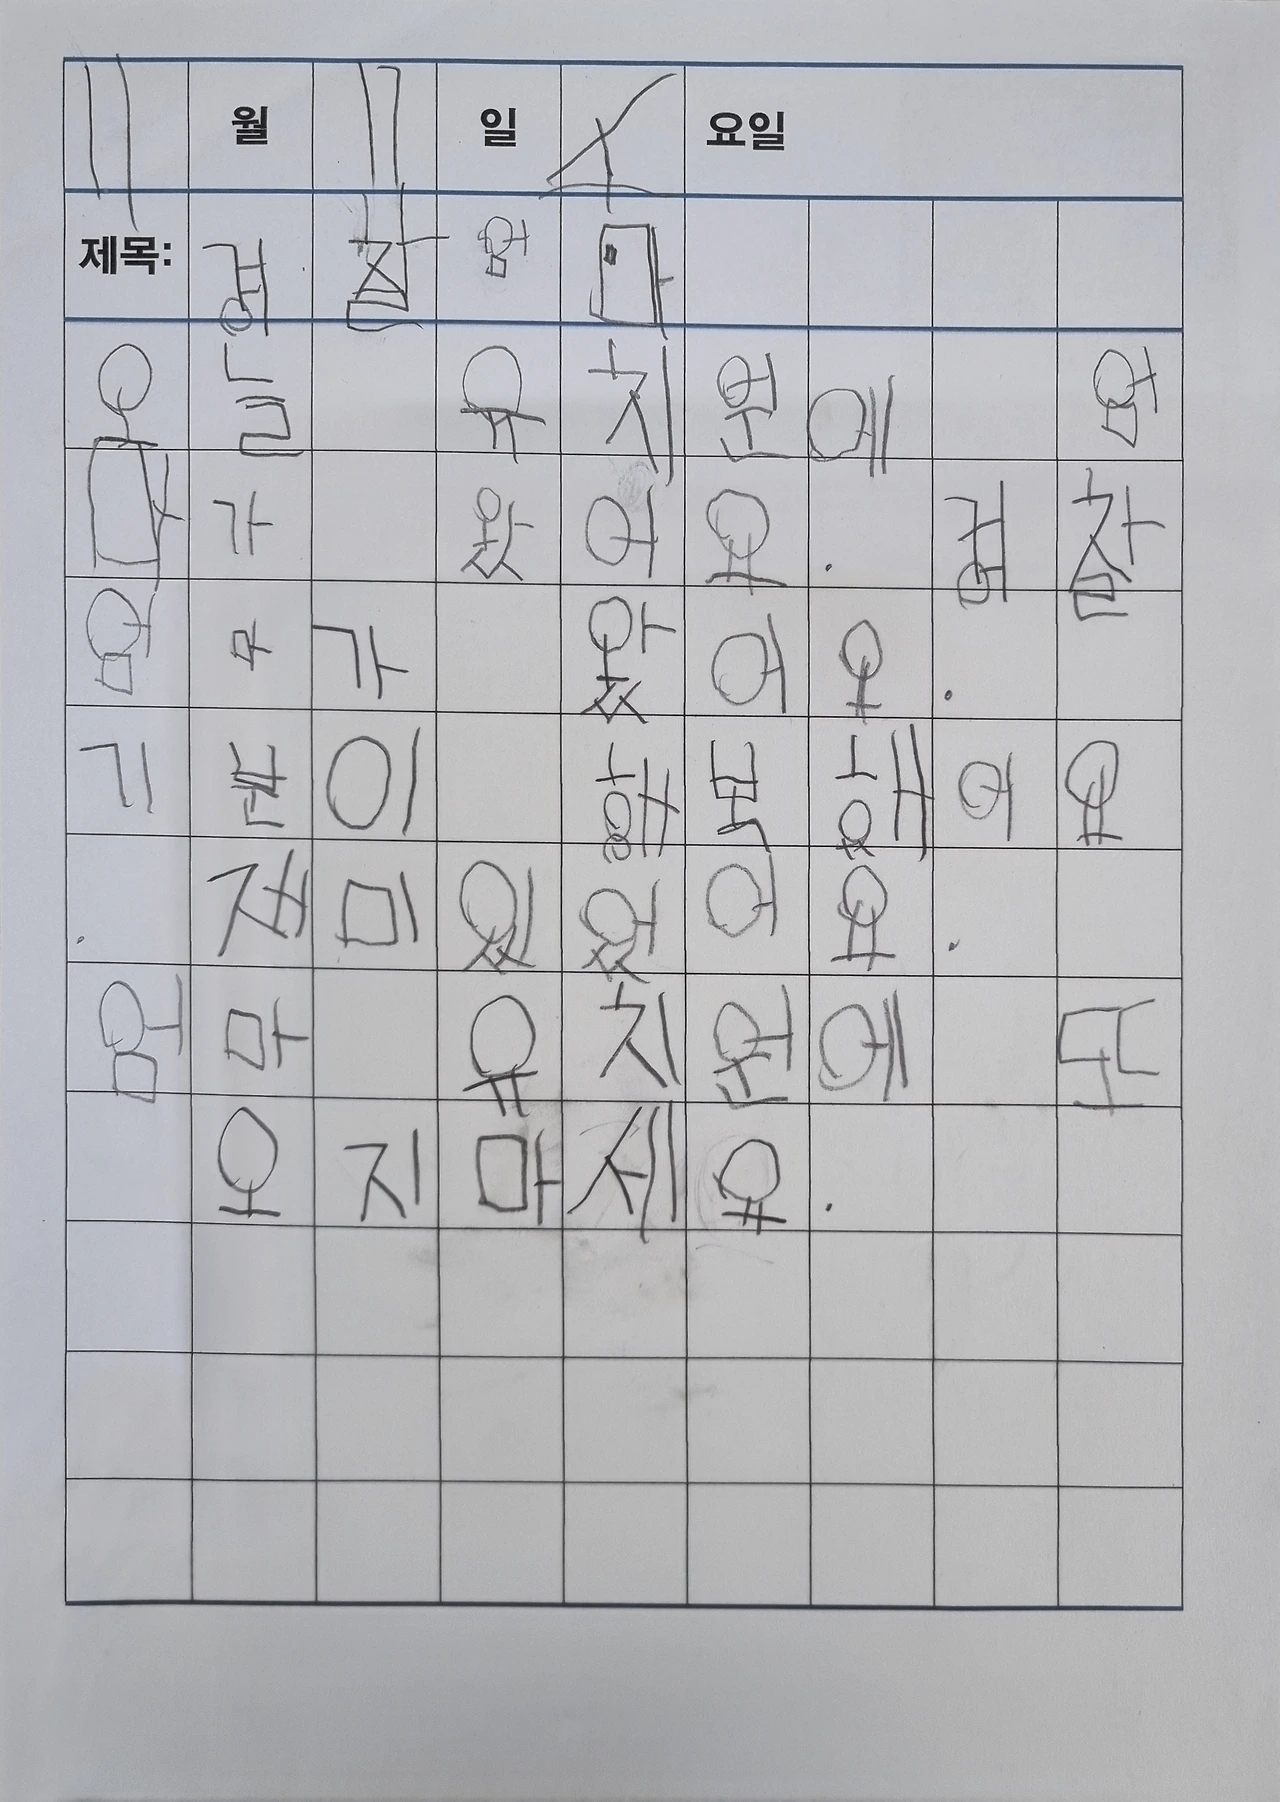 11월 17일 수요일
제목: 경찰 엄마
오늘 유치원에 엄
마가 왔어요. 경찰
엄마가 왔어요.
기분이 행복했어요
. 재미있었어요.
엄마 유치원에 또
오지마세요.